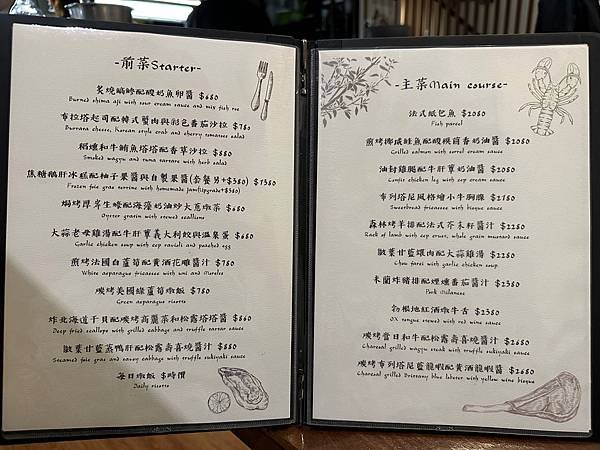 -前菜Starter-
炙燒縞鰺配酸奶魚卵醬 $680
Burned shima aji with sour cream sauce and mix fish roe
布拉塔起司配韓式蟹肉與彩色番茄沙拉 $780
Burrata cheese, Korean style crab and cherry tomatoes salad
稻燻和牛鮪魚塔塔配香草沙拉 $880
Smoked wagyu and tuna tartare with herb salad
焦糖鵝肝冰糕配柚子果醬與自製果醬(套餐另+$380) $1380
Frozen foie gras terrine with homemade jam(upgrade+$380)
焗烤厚岸生蠔配海藻奶油炒大蔥燉菜 $680
Oyster gratin with stewed scallions
大蒜老母雞湯配牛肝蕈義大利餃與溫泉蛋 $680
Garlic chicken soup with cep ravioli and poached egg
煎烤法國白蘆筍配黃酒花雕醬汁 $780
White asparagus fricassee with uni and Morels
碳烤美國綠蘆筍燉飯 $780
Green asparagus risotto
炸北海道干貝配碳烤高麗菜和松露塔塔醬 $860
Deep fried scallops with grilled cabbage and truffle tartar sauce
皺葉甘藍蒸鴨肝配松露壽喜燒醬汁 $880
Steamed foie gras and savoy cabbage with truffle sukiyaki sauce
每日燉飯 $時價
Daily risotto
-主菜Main course-
法式紙包魚 $2080
Fish parcel
煎烤挪威鮭魚配酸模茴香奶油醬 $2080
Grilled salmon with sorrel cream sauce
油封雞腿配牛肝蕈奶油醬 $2080
Confit chicken leg with cep cream sauce
布列塔尼風格燴小牛胸腺 $2180
Sweetbread fricassee with bisque sauce
森林烤羊排配法式芥末籽醬汁 $2280
Rack of lamb with cep crust, whole grain mustard sauce
皺葉甘藍鑲肉配大蒜雞湯 $2280
Chou farci with garlic chicken soup
米蘭炸豬排配煙燻番茄醬汁 $2380
Pork Milanese
勃根地紅酒燉牛舌 $2380
OX tongue stewed with red wine sauce
碳烤當日和牛配松露壽喜燒醬汁 $2680
Charcoal grilled wagyu steak with truffle sukiyaki sauce
碳烤布列塔尼藍龍蝦配黃酒龍蝦醬 $2680
Charcoal grilled Brittany blue lobster with yellow wine bisque